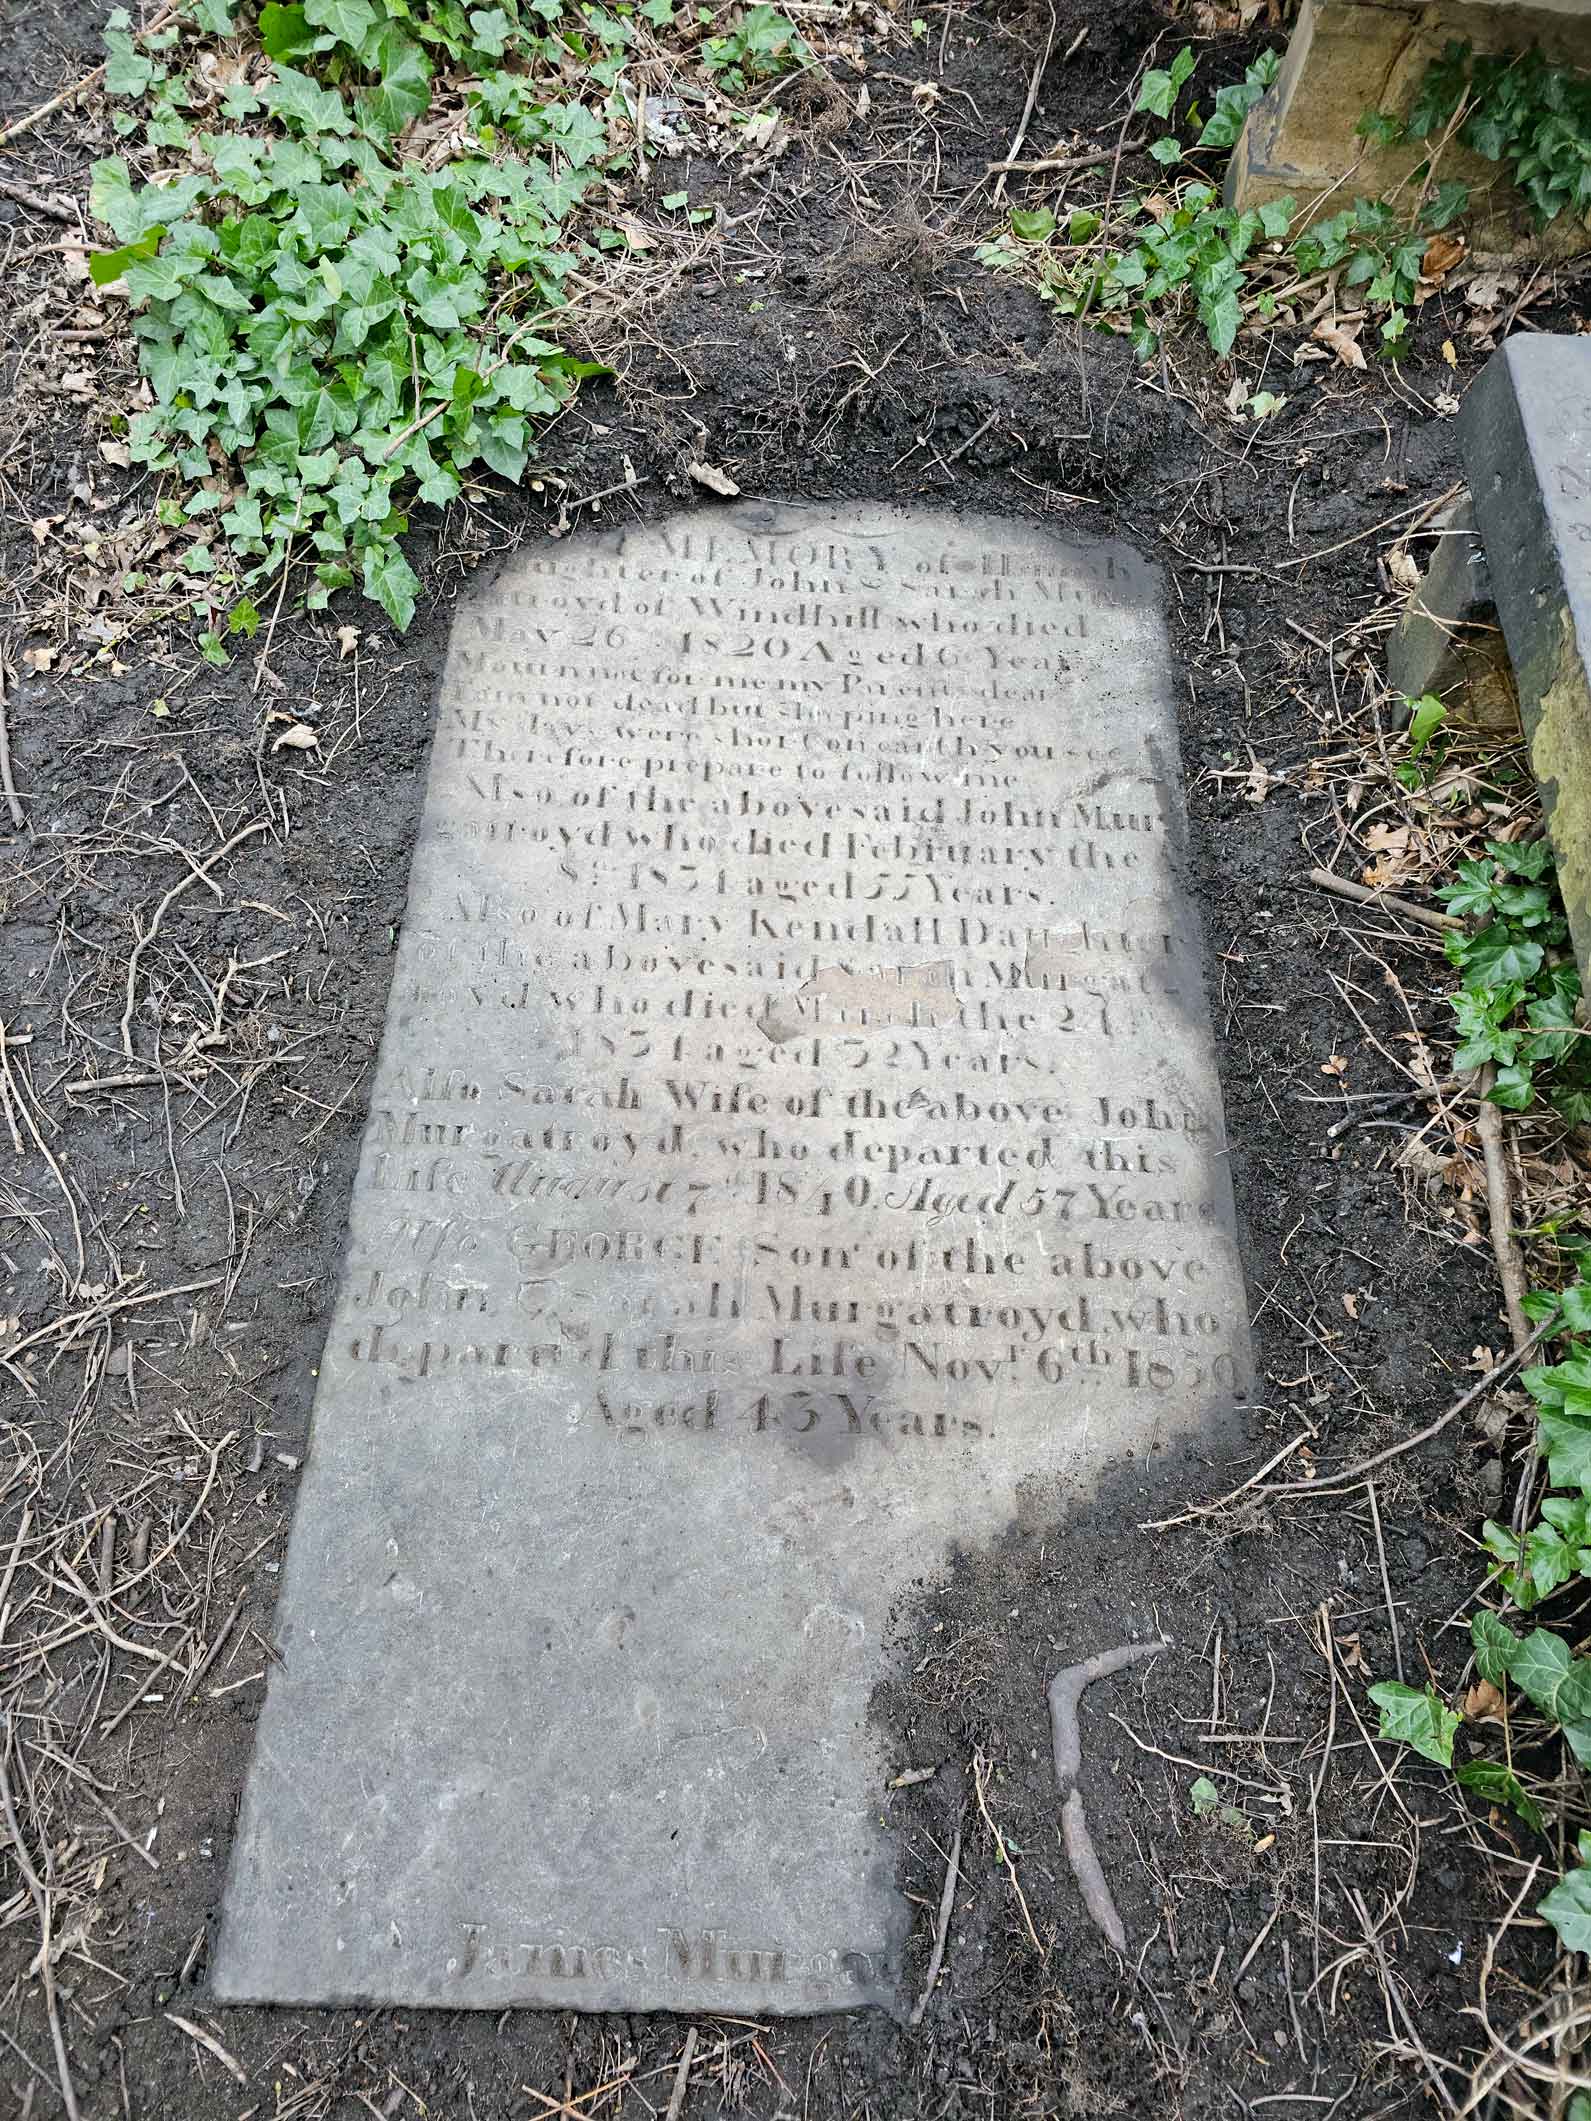 MEMORY of Hannah
ughter of John & Sarah Mur
gatroyd of Windhill who died
May 26th 1820 Aged 6 Years
Mourn not for me my Parents dear
I am not dead but sleeping here
My days were short on earth you see
Therefore prepare to follow me
Also of the abovesaid John Mur
gatroyd who died February the
8th 1834 aged 55 Years.
Also of Mary Kendall Daughter
of the abovesaid Sarah Murgat-
royd who died March the 24th
1834 aged 32 Years.
Also Sarah Wife of the above John
Murgatroyd, who departed this
Life August 7th 1840. Aged 57 Years
Also GEORGE Son of the above
John & Sarah Murgatroyd, who
departed this Life Novr. 6th 1850
Aged 43 Years.
James Murga